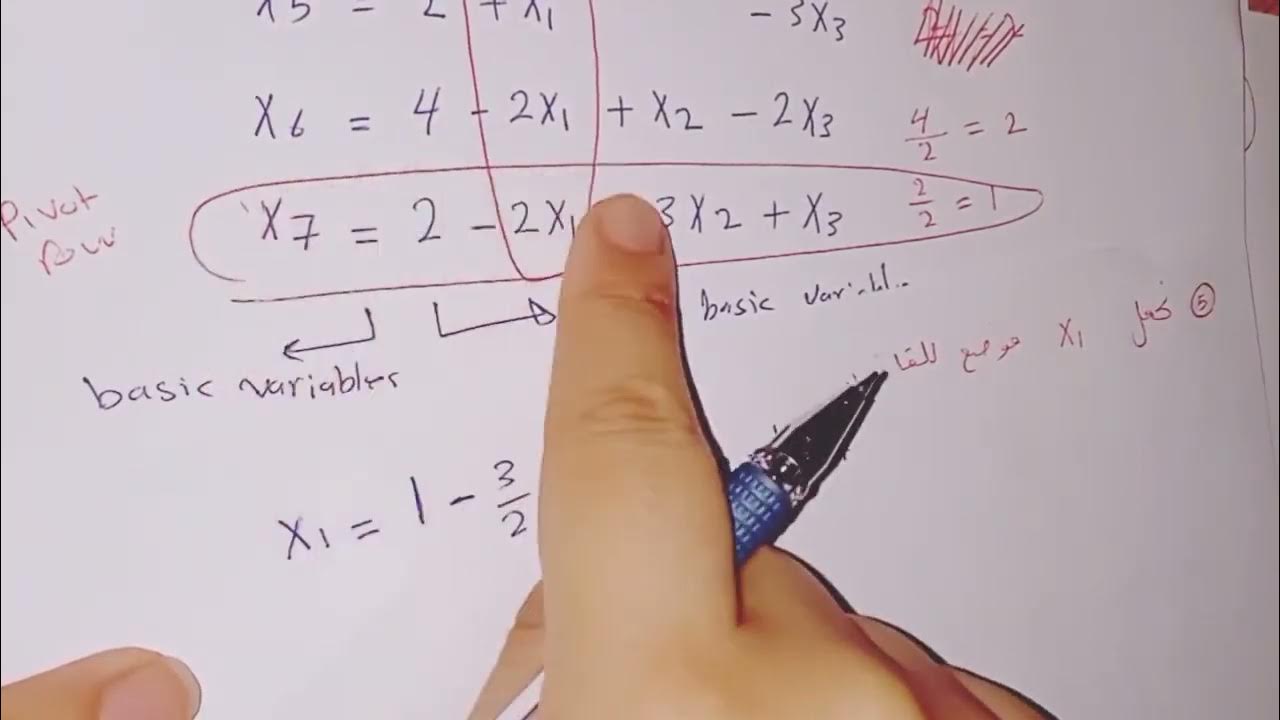 x5 = 2 + x1 - 3x3
x6 = 4 - 2x1 + x2 - 2x3 4/2 = 2
Pivot row
x7 = 2 - 2x1 3x2 + x3 2/2 = 1
basic variables
basic
⑤ x1 موضع
x1 = 1 - 3/2